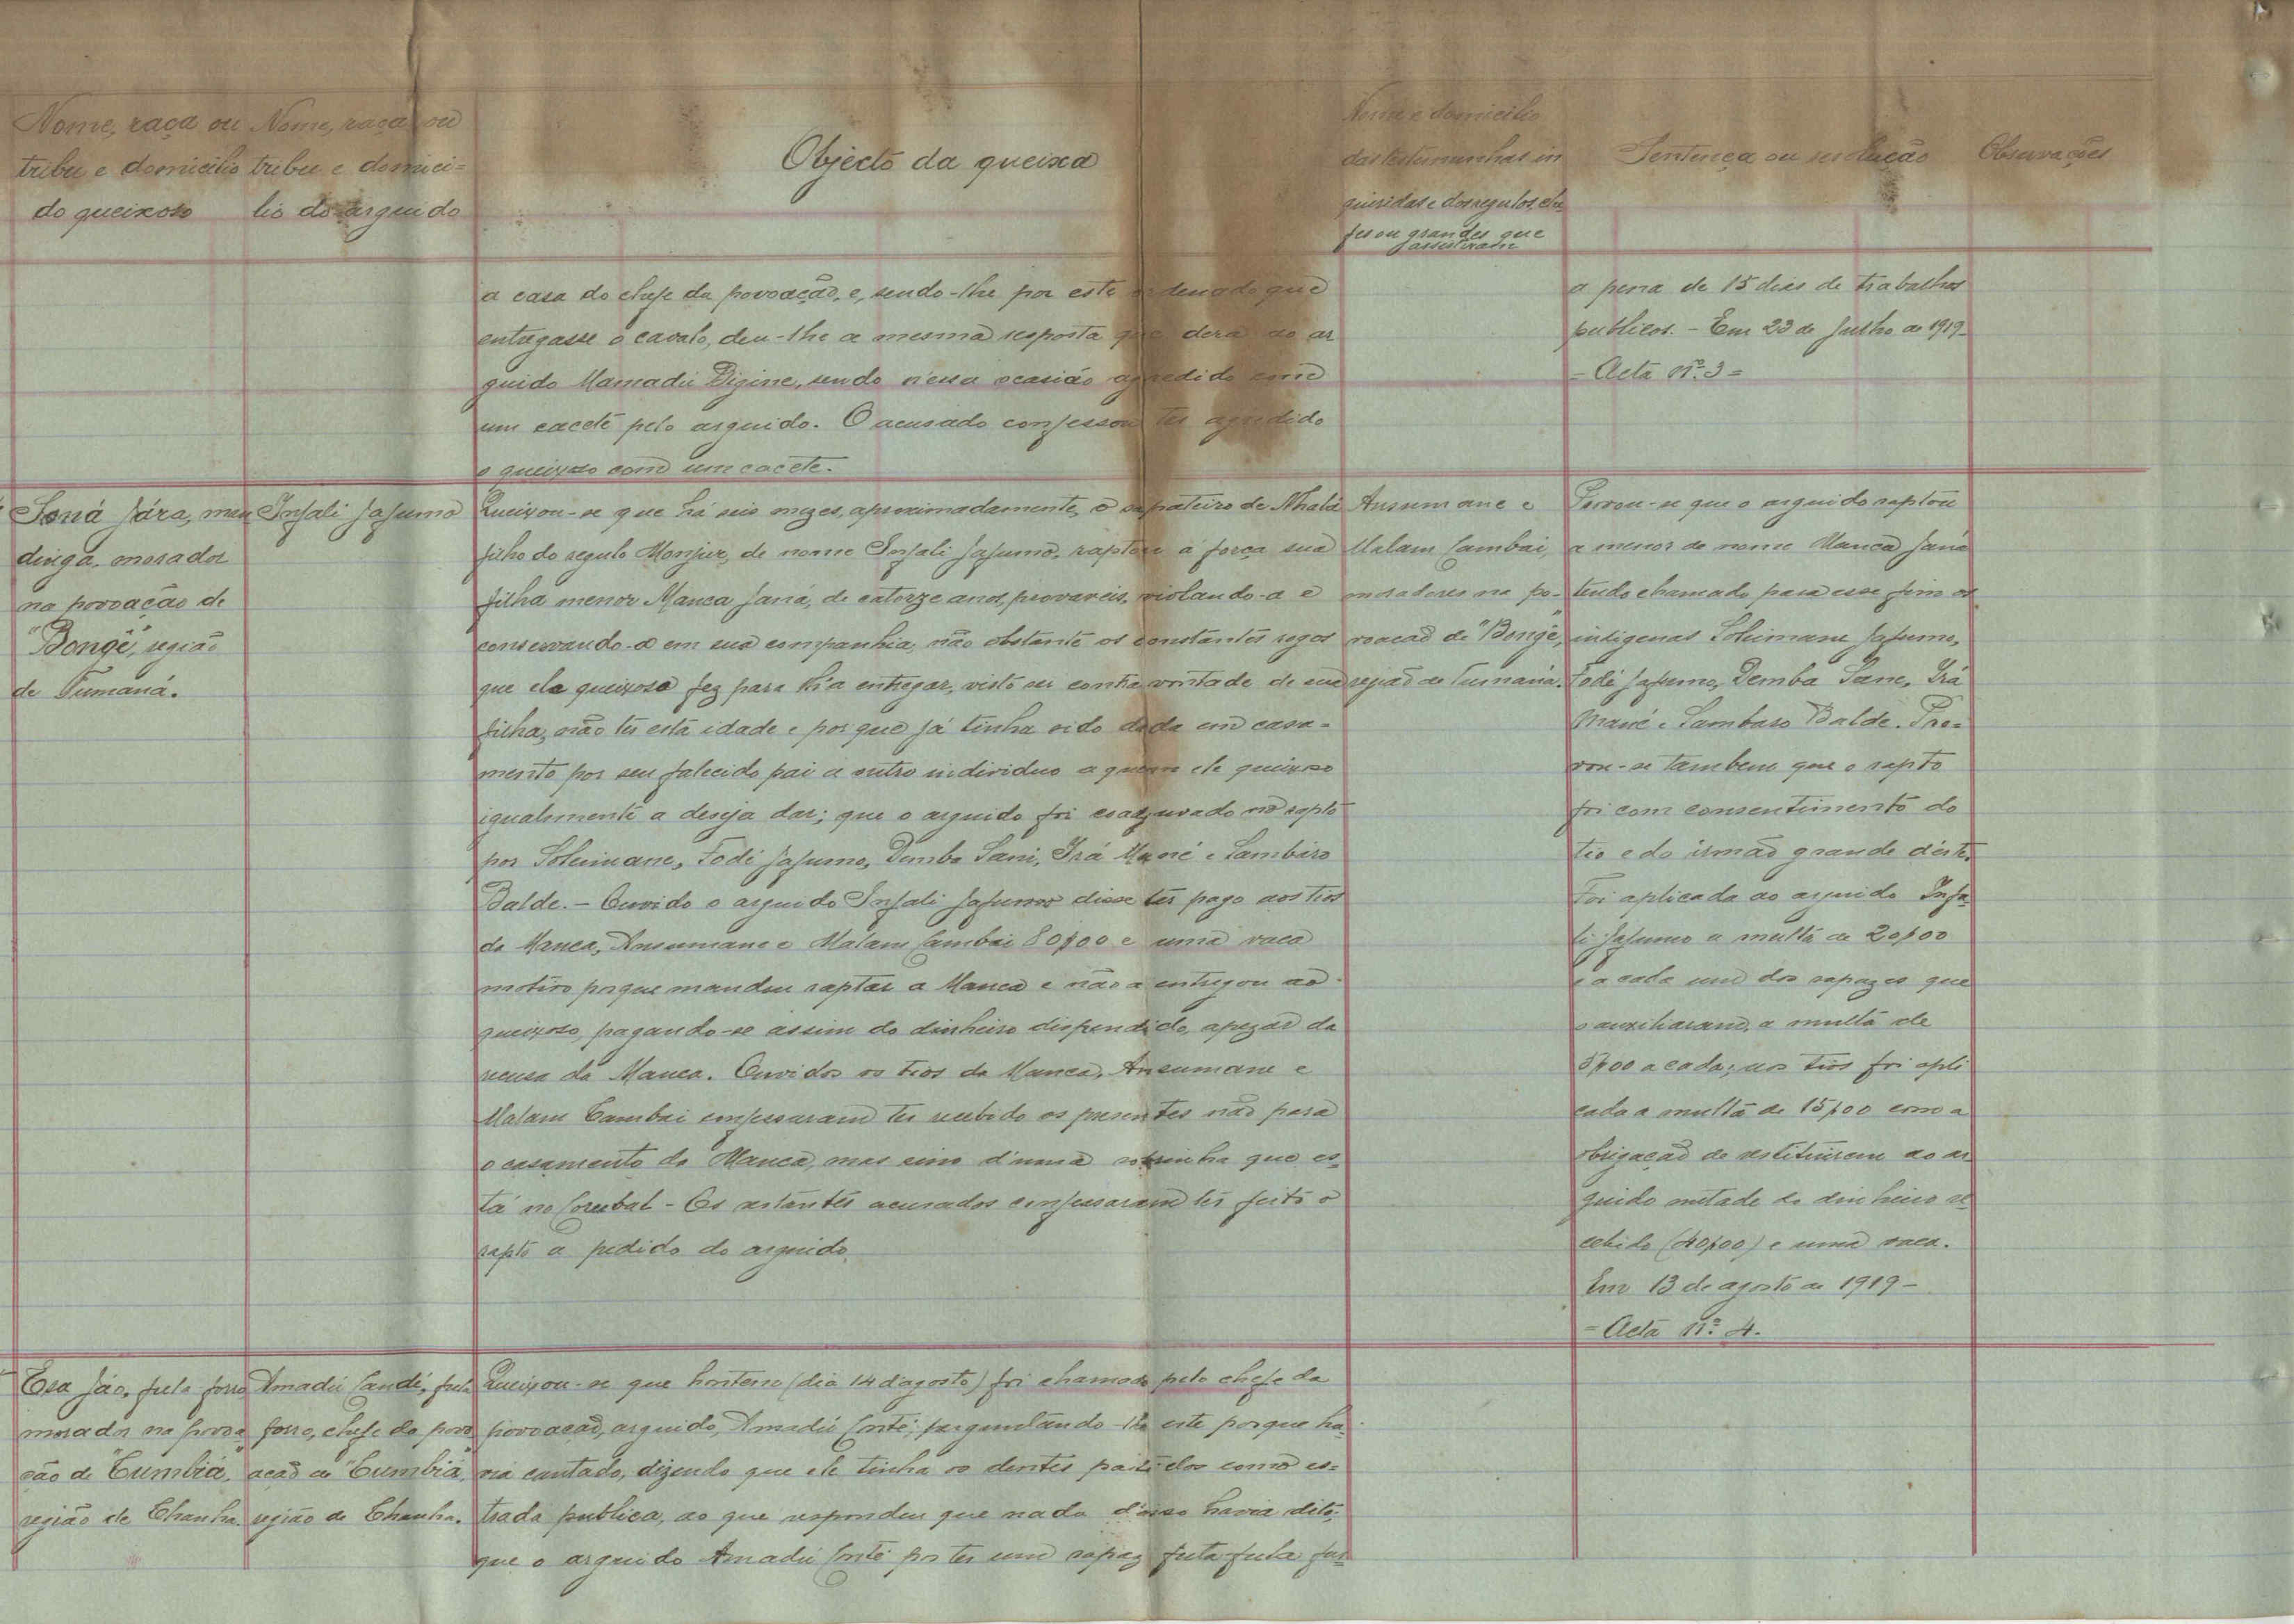 Nome, raça ou
tribu e domicilio
do queixoso
Nome, raça ou
tribu e domici=
lio do arguido
Objécto da queixa
Nome e domicilio
das testemunhas in
queridas e dos regulos, che
fes ou grandes que
assistiram
Sentença ou resolução
Observações
a casa do chefe da povoação, e, sendo-lhe por este ordenado que
entregasse o cavalo, deu-lhe a mesma resposta que dera ao ar
guido Mamadú Digine, sendo n'essa ocasião agredido com
um cacete pelo arguido. O acusado confessou ter agredido
o queixoso com um cacete.
a pena de 15 dias de trabalhos
publicos. - Em 23 de Julho de 1919-
- Acta nº 3 =
Soná Jára, man
dinga, morador
na povoação de
"Bongê", região
de Tumaná.
Infali Jafuno
Queixou-se que há seis mezes, aproximadamente, o sapateiro de Nhala
filho do regulo Monjur, de nome Infali Jafuno, raptou á força sua
filha menor Manca Janá, de catorze anos, provaveis, violando-a e
conservando-a em sua companhia, não obstante os constantes rogos
que ele queixoso fez para lh'a entregar, visto ser contra vontade de sua
filha, não ter esta idade e por que já tinha sido dada em casa=
mento por seu falecido pai a outro individuo a quem ele queixoso
igualmente a deseja dar; que o arguido foi coadjuvado no rapto
por Soleimane, Fodé Jafuno, Demba Sani, Irá Mané e Sambaro
Balde. - Ouvido o arguido Infali Jafuno disse ter pago aos tios
da Manca, Ansumane e Malam Cambai 80$00 e uma vaca
motivo porque mandou raptar a Manca e não a entregou ao
queixoso, pagando-se assim do dinheiro dispendido, apezar da
recusa da Manca. Ouvidos os tios da Manca, Ansumane e
Malam Cambai confessaram ter recebido os presentes não para
o casamento da Manca, mas sim d'uma sobrinha que es=
tá no Corubal - Os restantes acusados confessaram ter feito o
rapto a pedido do arguido.
Ansumane e
Malam Cambai,
moradores na po-
voacão de "Bongê",
região de Tumaná.
Provou-se que o arguido raptou
a menor de nome Manca Janá
tendo chamado para esse fim os
indigenas Soleimane Jafuno,
Fodé Jafuno, Demba Sane, Irá
Mané e Sambaro Balde. Pro=
vou-se tambem que o rapto
foi com consentimento do
tio e do irmão grande deste.
Foi aplicada ao arguido Infa-
li Jafuno a multa de 20$00
e a cada um dos rapazes que
o auxiliaram, a multa de
5$00 a cada; aos tios foi apli
cada a multa de 15$00 com a
obrigação de restituirem ao ar
guido metade do dinheiro re
cebido (40$00) e uma vaca.
Em 13 de agosto de 1919 -
= Acta nº 4.
Esa Jáo, fula forro
morador na povoa
ção de "Cumbiá",
região de Chanha.
Amadú Candé, fula
forro, chefe da povo
ação de "Cumbiá",
região de Chanha.
Queixou-se que hontem (dia 14 d'agosto) foi chamado pelo chefe da
povoacão, arguido, Amadú Conté; perguntando-lhe este porque ha-
via cantado, dizendo que ele tinha os dentes partidos como es=
trada publica, ao que respondeu que nada d'isso havia dito;
que o arguido Amadú Conté por ter um rapaz futa-fula